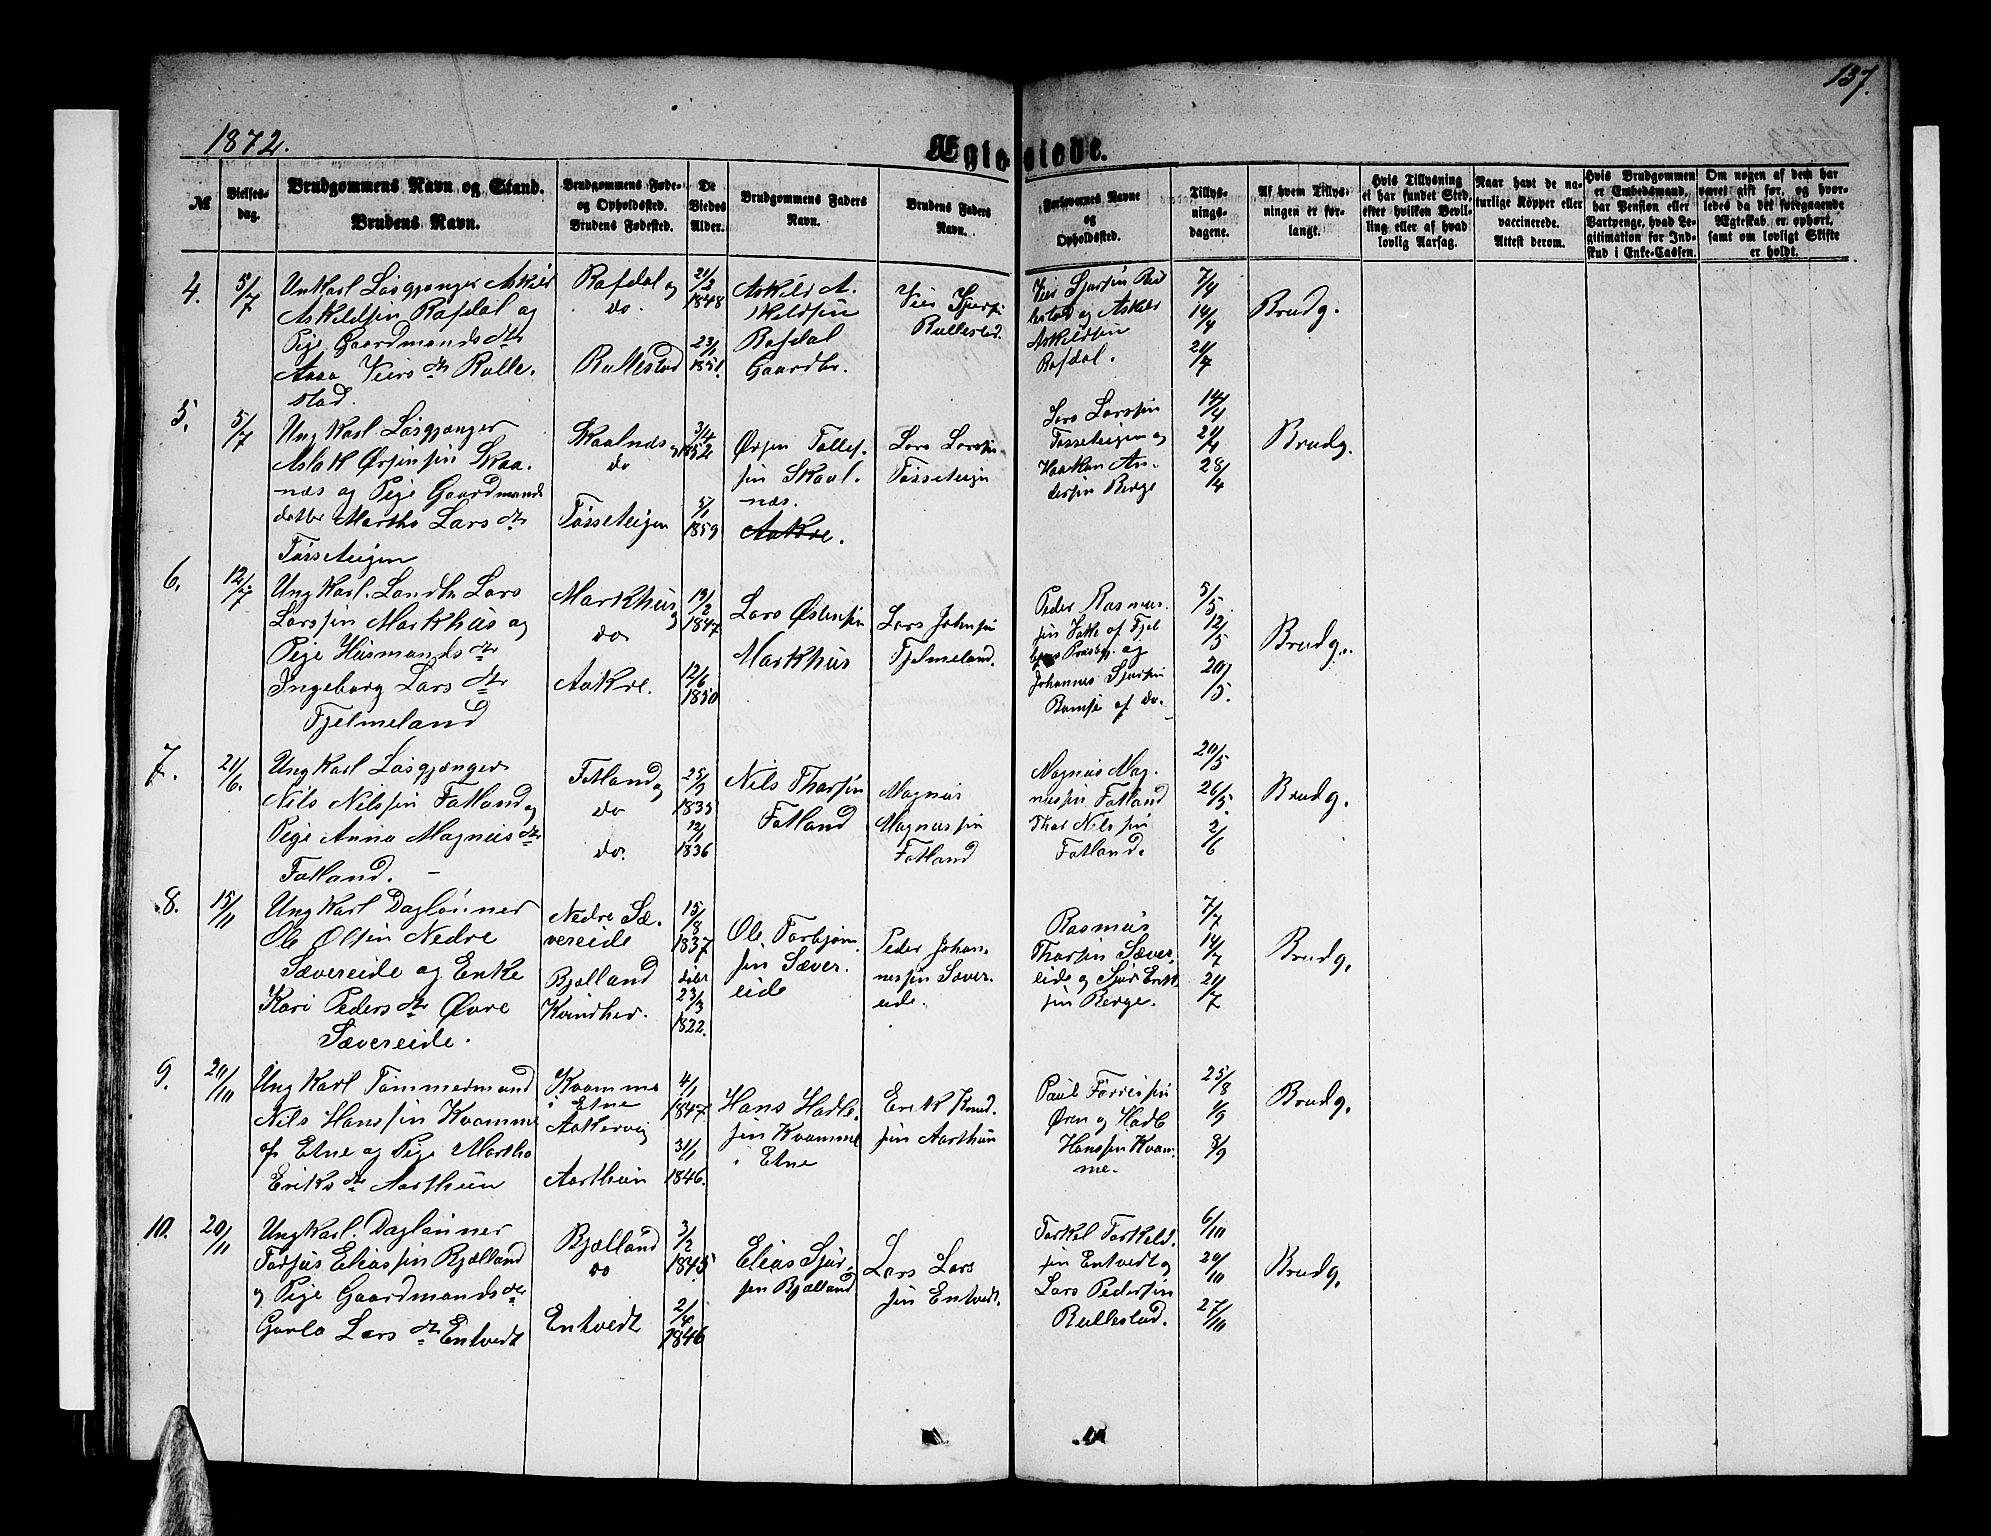 137.
1872.
Ægteviede.
№
Vielses-
dag.
Brudgommens Navn og Stand.
Brudens Navn.
Brudgommens Føde-
og Opholdssted.
Brudens Fødested.
De
Viedes
Alder.
Brudgommens Faders
Navn.
Brudens Faders
Navn.
Forlovernes Navne
og
Opholdssted.
Tillys-
nings-
dagene.
Af hvem Tillys-
ningen er for-
langt.
Hvis Tillysning
ei har fundet Sted,
efter hvilken Bevil-
ling eller af hvad
lovlig Aarsag.
Naar havt de na-
turlige Kopper eller
vaccinerede.
Attest derom.
Hvis Brudgommen
er Embedsmand,
har Pension eller
Vartpenge, hvad Le-
gitimation for Ind-
skud i Enke-Cassen.
Om nogen af dem har
været gift før, og hvor-
ledes da det foregaaende
Ægteskab er ophørt,
samt om lovligt Skifte
er holdt.
4.
5/7
Unkarl Løsgjænger Askild
Askildsen Rafdal og
Pige Gaardmands dtr
Aasa Viers dtr Rulle-
stad.
Rafdal og
do.
Rullestad
21/2
1848
23/1
1851.
Askild A.
skildsen
Rafdal
Gaardbr.
Vier Sjurs.
Rullestad.
Vier Sjursen Rul
lestad og Askild
Askildsen
Rafdal.
7/4
14/4
21/4
Brudg.
5.
5/7
Ungkarl Løsgjænger
Aslak Ørjansen Skaa-
næs og Pige Gaardmands
datter Martha Lars dtr
Tøsseteigen
Skaalnæs og
do
Tøsseteigen
3/4
1852
5/1
1859
Ørjen Tollef-
sen Skaal-
næs.
Aakre.
Lars Larsen
Tøsseteigen
Lars Larsen
Tøsseteigen og
Haakon An-
dersen Berge
14/4
21/4
28/4
Brudg.
6.
12/7
Ungkarl. Landh. Lars
Larssen Markhus og
Pige Husmands dtr
Ingeborg Lars dtr
Fjelmeland
Markhus og
do
Aakre.
19/2
1847
12/6
1850
Lars Østensen
Markhus
Lars Johnsen
Fjelmeland.
Peder Rasmus-
sen Vatte af Fjel
bergs Præstgj. og
Johannes Sjursen
Ramse af do.
5/5
12/5
20/5.
Brudg.
7.
21/6.
Ungkarl Løsgjænger
Nils Nilssen Fatland og
Pige Anna Magnus dtr
Fatland.
Fatland og
do
do.
25/3
1835
12/1
1836
Nils Thorsen
Fatland
Magnus
Magnussen
Fatland
Magnus Mag-
nussen Fatland
Thor Nilssen
Fatland.
20/5
26/5.
2/6
Brudg.
8.
15/11
Ungkarl Daglønner
Ole Olsen Nedre
Sævereide og Enke
Kari Peders dtr Øvre
Sævereide.
Nedre Sæ-
vereide
Bjælland
Kvindher.
15/8
1837
23/3
1822.
Ole Torbjørn-
sen Sæver-
eide
Peder Johan-
nessen Sæver-
eide.
Rasmus
Thorsen Sæver-
eide og Sjur Erik
sen Berge.
7/7
14/7
21/7
Brudg.
9.
20/10
Ungkarl Tømmermand
Nils Hanssen Kvamme
af Etne og Pige Martha
Eriks dtr Aarthun
Kvamme
i Etne
Aakervig
Aarthun
4/1
1847.
31/1
1846.
Hans Hadle-
sen Kvamme
i Etne
Erik Knud-
sen Aarthun
Paul Torressen
Øren og Hadle
Hanssen Kvam-
me.
25/8
1/9
8/9
Brudg.
10.
20/11
Ungkarl. Dagløner
Torjus Eliassen Bjælland
og Pige Gaardmands dtr
Guela Lars dtr Entvedt
Bjælland
do
Entvedt
3/2
1845
2/4
1846
Elias Sjur-
sen Bjælland
Lars Lars
sen Entvedt.
Torkel Torkeld-
sen Entvedt og
Lars Pedersen
Rullestad.
6/10
20/10
27/10
Brudg.